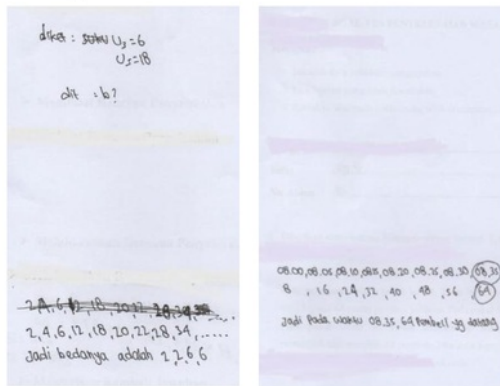 diket : suku U₃ = 6
U₅ = 18
dit : b?
2, 4, 6, 12, 18, 20, 22, 28, 34, .....
Jadi bedanya adalah 2 2 6 6
08.00, 08.05, 08.10, 08.15, 08.20, 08.25, 08.30, 08.35
8 , 16 , 24 , 32 , 40 , 48 , 56 , 64
Jadi Pada waktu 08.35, 64 Pembeli yg datang